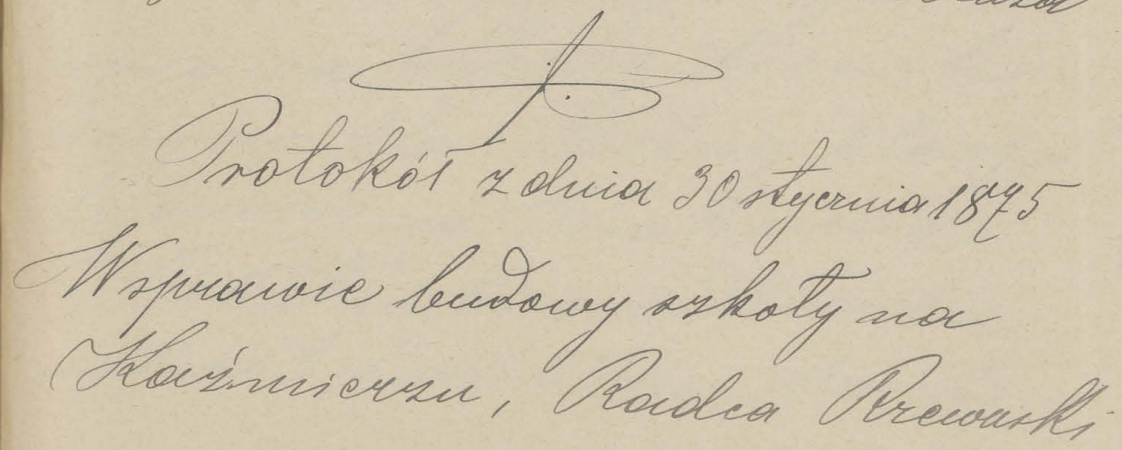 Protokół z dnia 30 stycznia 1875
W sprawie budowy szkoły na
Kaźmierzu, Radca